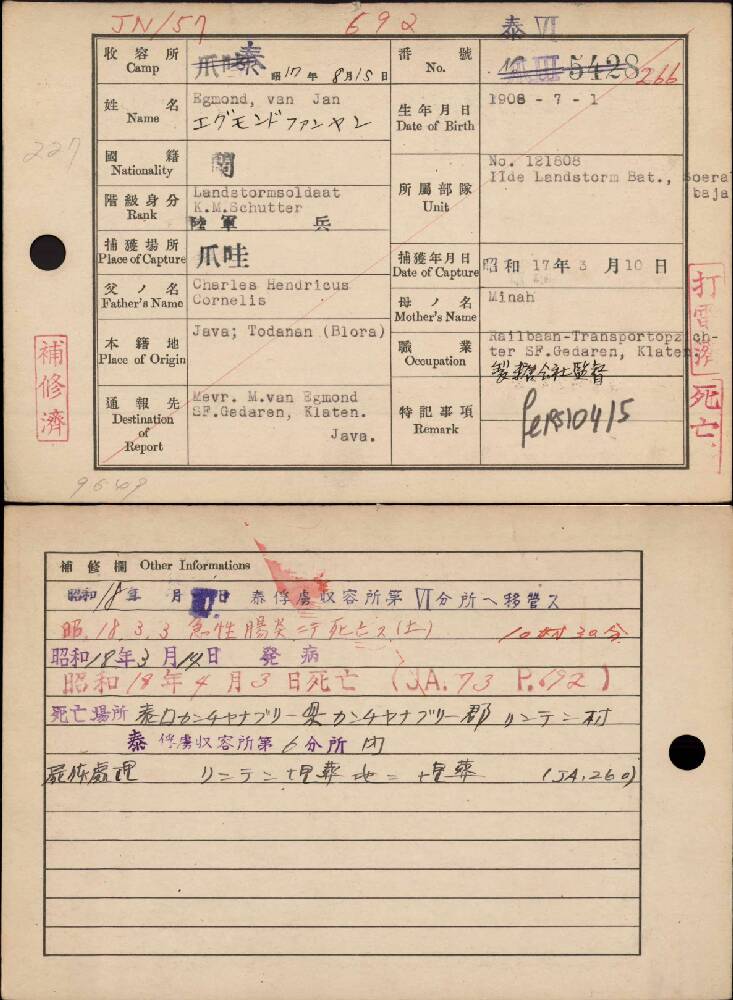 JN/57
692
泰 VI
收容所 Camp
爪哇 泰
昭17年8月15日
番號 No.
5428
266
姓名 Name
Egmond, van Jan
エグモンドファンヤン
生年月日 Date of Birth
1908 - 7 - 1
227
國籍 Nationality
蘭
階級身分 Rank
Landstormsoldaat
K.M.Schutter
陸軍 兵
所屬部隊 Unit
No. 121608
IIde Landstorm Bat., Soera
baja
捕獲場所 Place of Capture
爪哇
捕獲年月日 Date of Capture
昭和 17年 3月10日
父ノ名 Father's Name
Charles Hendricus
Cornelis
母ノ名 Mother's Name
Minah
本籍地 Place of Origin
Java; Todanan (Blora)
職業 Occupation
Railbaan-Transportopzich-
ter SF.Gedaren, Klaten.
製糖会社監督
通報先 Destination of Report
Mevr. M.van Egmond
SF.Gedaren, Klaten.
Java.
特記事項 Remark
補修濟
打電濟
死亡
補修欄 Other Informations
昭和18年 月 日 泰俘虜収容所第VI分所ヘ移管ス
昭.18.3.3 急性腸炎ニテ死亡ス(土)
10時30分
昭和18年3月14日 発病
昭和18年4月3日死亡 (JA.73 P.692)
死亡場所 泰口カンチヤナブリー県カンチヤナブリー郡リンテン村
泰俘虜収容所第6分所内
屍体處理 リンテン埋葬地ニ埋葬 (JA.260)